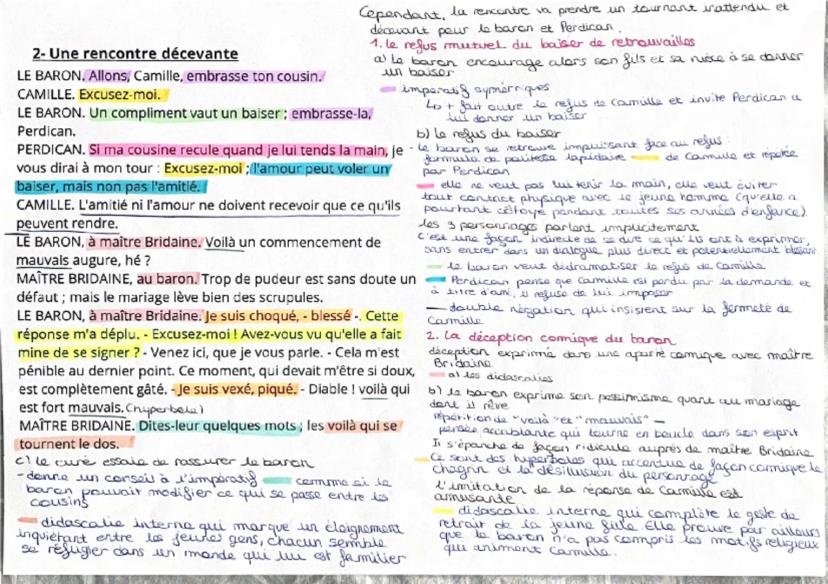 2- Une rencontre décevante
LE BARON. Allons, Camille, embrasse ton cousin.
CAMILLE. Excusez-moi.
LE BARON. Un compliment vaut un baiser ; embrasse-la,
Perdican.
PERDICAN. Si ma cousine recule quand je lui tends la main, je
vous dirai à mon tour : Excusez-moi ; l'amour peut voler un
baiser, mais non pas l'amitié.
CAMILLE. L'amitié ni l'amour ne doivent recevoir que ce qu'ils
peuvent rendre.
LE BARON, à maître Bridaine. Voilà un commencement de
mauvais augure, hé ?
MAÎTRE BRIDAINE, au baron. Trop de pudeur est sans doute un
défaut ; mais le mariage lève bien des scrupules.
LE BARON, à maître Bridaine. Je suis choqué, - blessé -. Cette
réponse m'a déplu. - Excusez-moi ! Avez-vous vu qu'elle a fait
mine de se signer ? - Venez ici, que je vous parle. - Cela m'est
pénible au dernier point. Ce moment, qui devait m'être si doux,
est complètement gâté. - Je suis vexé, piqué. - Diable ! voilà qui
est fort mauvais. (hyperbole)
MAÎTRE BRIDAINE. Dites-leur quelques mots ; les voilà qui se
tournent le dos.
c) le curé essaie de rassurer le baron
- donne un conseil à l'impératif comme si le
baron pouvait modifier ce qui se passe entre les
cousins
didascalie interne qui marque un éloignement
inquiétant entre les jeunes gens, chacun semble
se réfugier dans un monde qui lui est familier
Cependant, la rencontre va prendre un tournant inattendu et
décevant pour le baron et Perdican.
1. le refus mutuel du baiser de retrouvailles
a) le baron encourage alors son fils et sa nièce à se donner
un baiser
impératifs symétriques
↳ + fait outre le refus de Camille et invite Perdican a
lui donner un baiser
b) le refus du baiser
- le baron se retrouve impuissant face au refus
formule de politesse lapidaire de Camille et répétée
par Perdican
elle ne veut pas lui tenir la main, elle veut éviter
tout contact physique avec le jeune homme (qu'elle a
pourtant côtoyé pendant toutes ses années d'enfance).
les 3 personnages parlent implicitement
C'est une façon indirecte de se dire ce qu'ils ont à exprimer,
sans entrer dans un dialogue plus direct et potentiellement blessant
le baron veut dédramatiser le refus de Camille
Perdican pense que Camille est perdu par la demande et
à titre d'ami, il refuse de lui imposer
— double négation qui insistent sur la fermeté de
Camille
2. La déception comique du baron
déception exprimée dans une aparté comique avec maître
Bridaine
a) les didascalies
b) le baron exprime son pessimisme quant au mariage
dont il rêve
répétition de "voilà" et "mauvais" —
pensée accablante qui tourne en boucle dans son esprit
Il s'épanche de façon ridicule auprès de maître Bridaine
Ce sont des hyperboles qui accentue de façon comique le
chagrin et la désillusion du personnage
l'imitation de la réponse de Camille est
amusante
didascalie interne qui complète le geste de
retrait de la jeune fille. Elle prouve par ailleurs
que le baron n'a pas compris les motifs religieux
qui animent Camille.